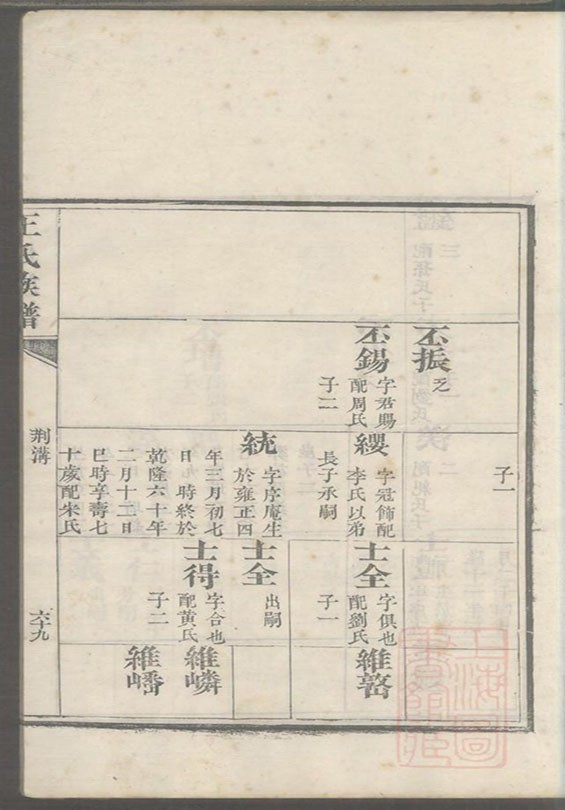 子一
丕振
乏
丕錫
字君賜
配周氏
子二
纓
字冠飾配
李氏以弟
長子承嗣
統
字序庵生
於雍正四
年三月初七
日 時終於
乾隆六十年
二月十二日
巳時享壽七
十歲配朱氏
士全
字俱也
配劉氏
子一
士全
出嗣
士得
字合也
配黃氏
子二
維
維嶙
維嶓
王氏族譜
荆溝
六十九